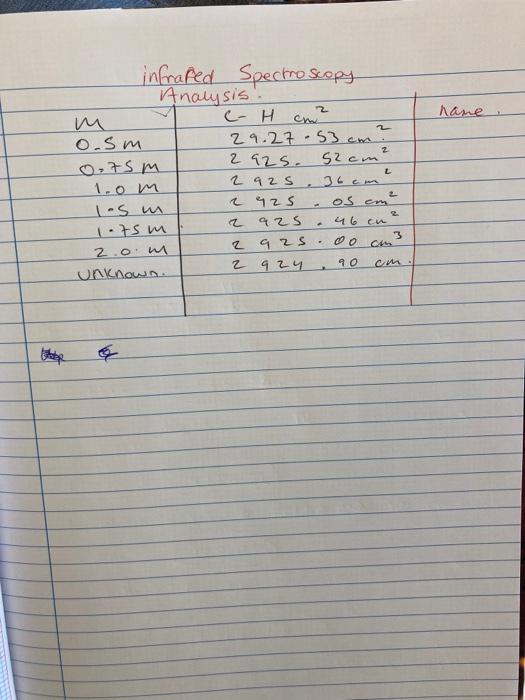 infraRed Spectroscopy
Analysis.
m C-H cm² name.
0.5m 29.27.53 cm²
0.75m 2925.52 cm²
1.0m 2925.36 cm²
1.5m 2925.05 cm²
1.75m 2925.46 cm²
2.0.m 2925.00 cm³
unknown. 2924.90 cm.